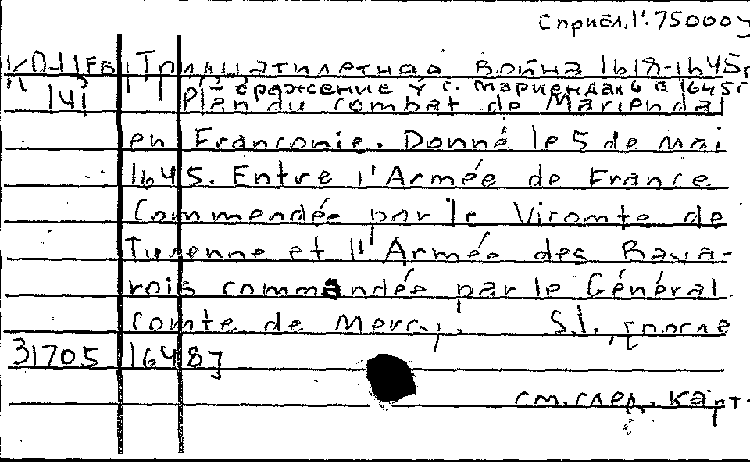 Сприбл. 1:75000]
KO-11FB Тридцатилетная война 1618-1645г
141 Сражение у с. Мариендаль в 1645г
Plan du combat de Mariendal
en Franconie. Donné le 5 de mai
1645. Entre l'Armée de France
Commendée par le Vicomte de
Turenne et l'Armée des Bava-
rois commandée par le Général
Comte de Mercy. S.l., после
31705 1648]
см. след. карт.